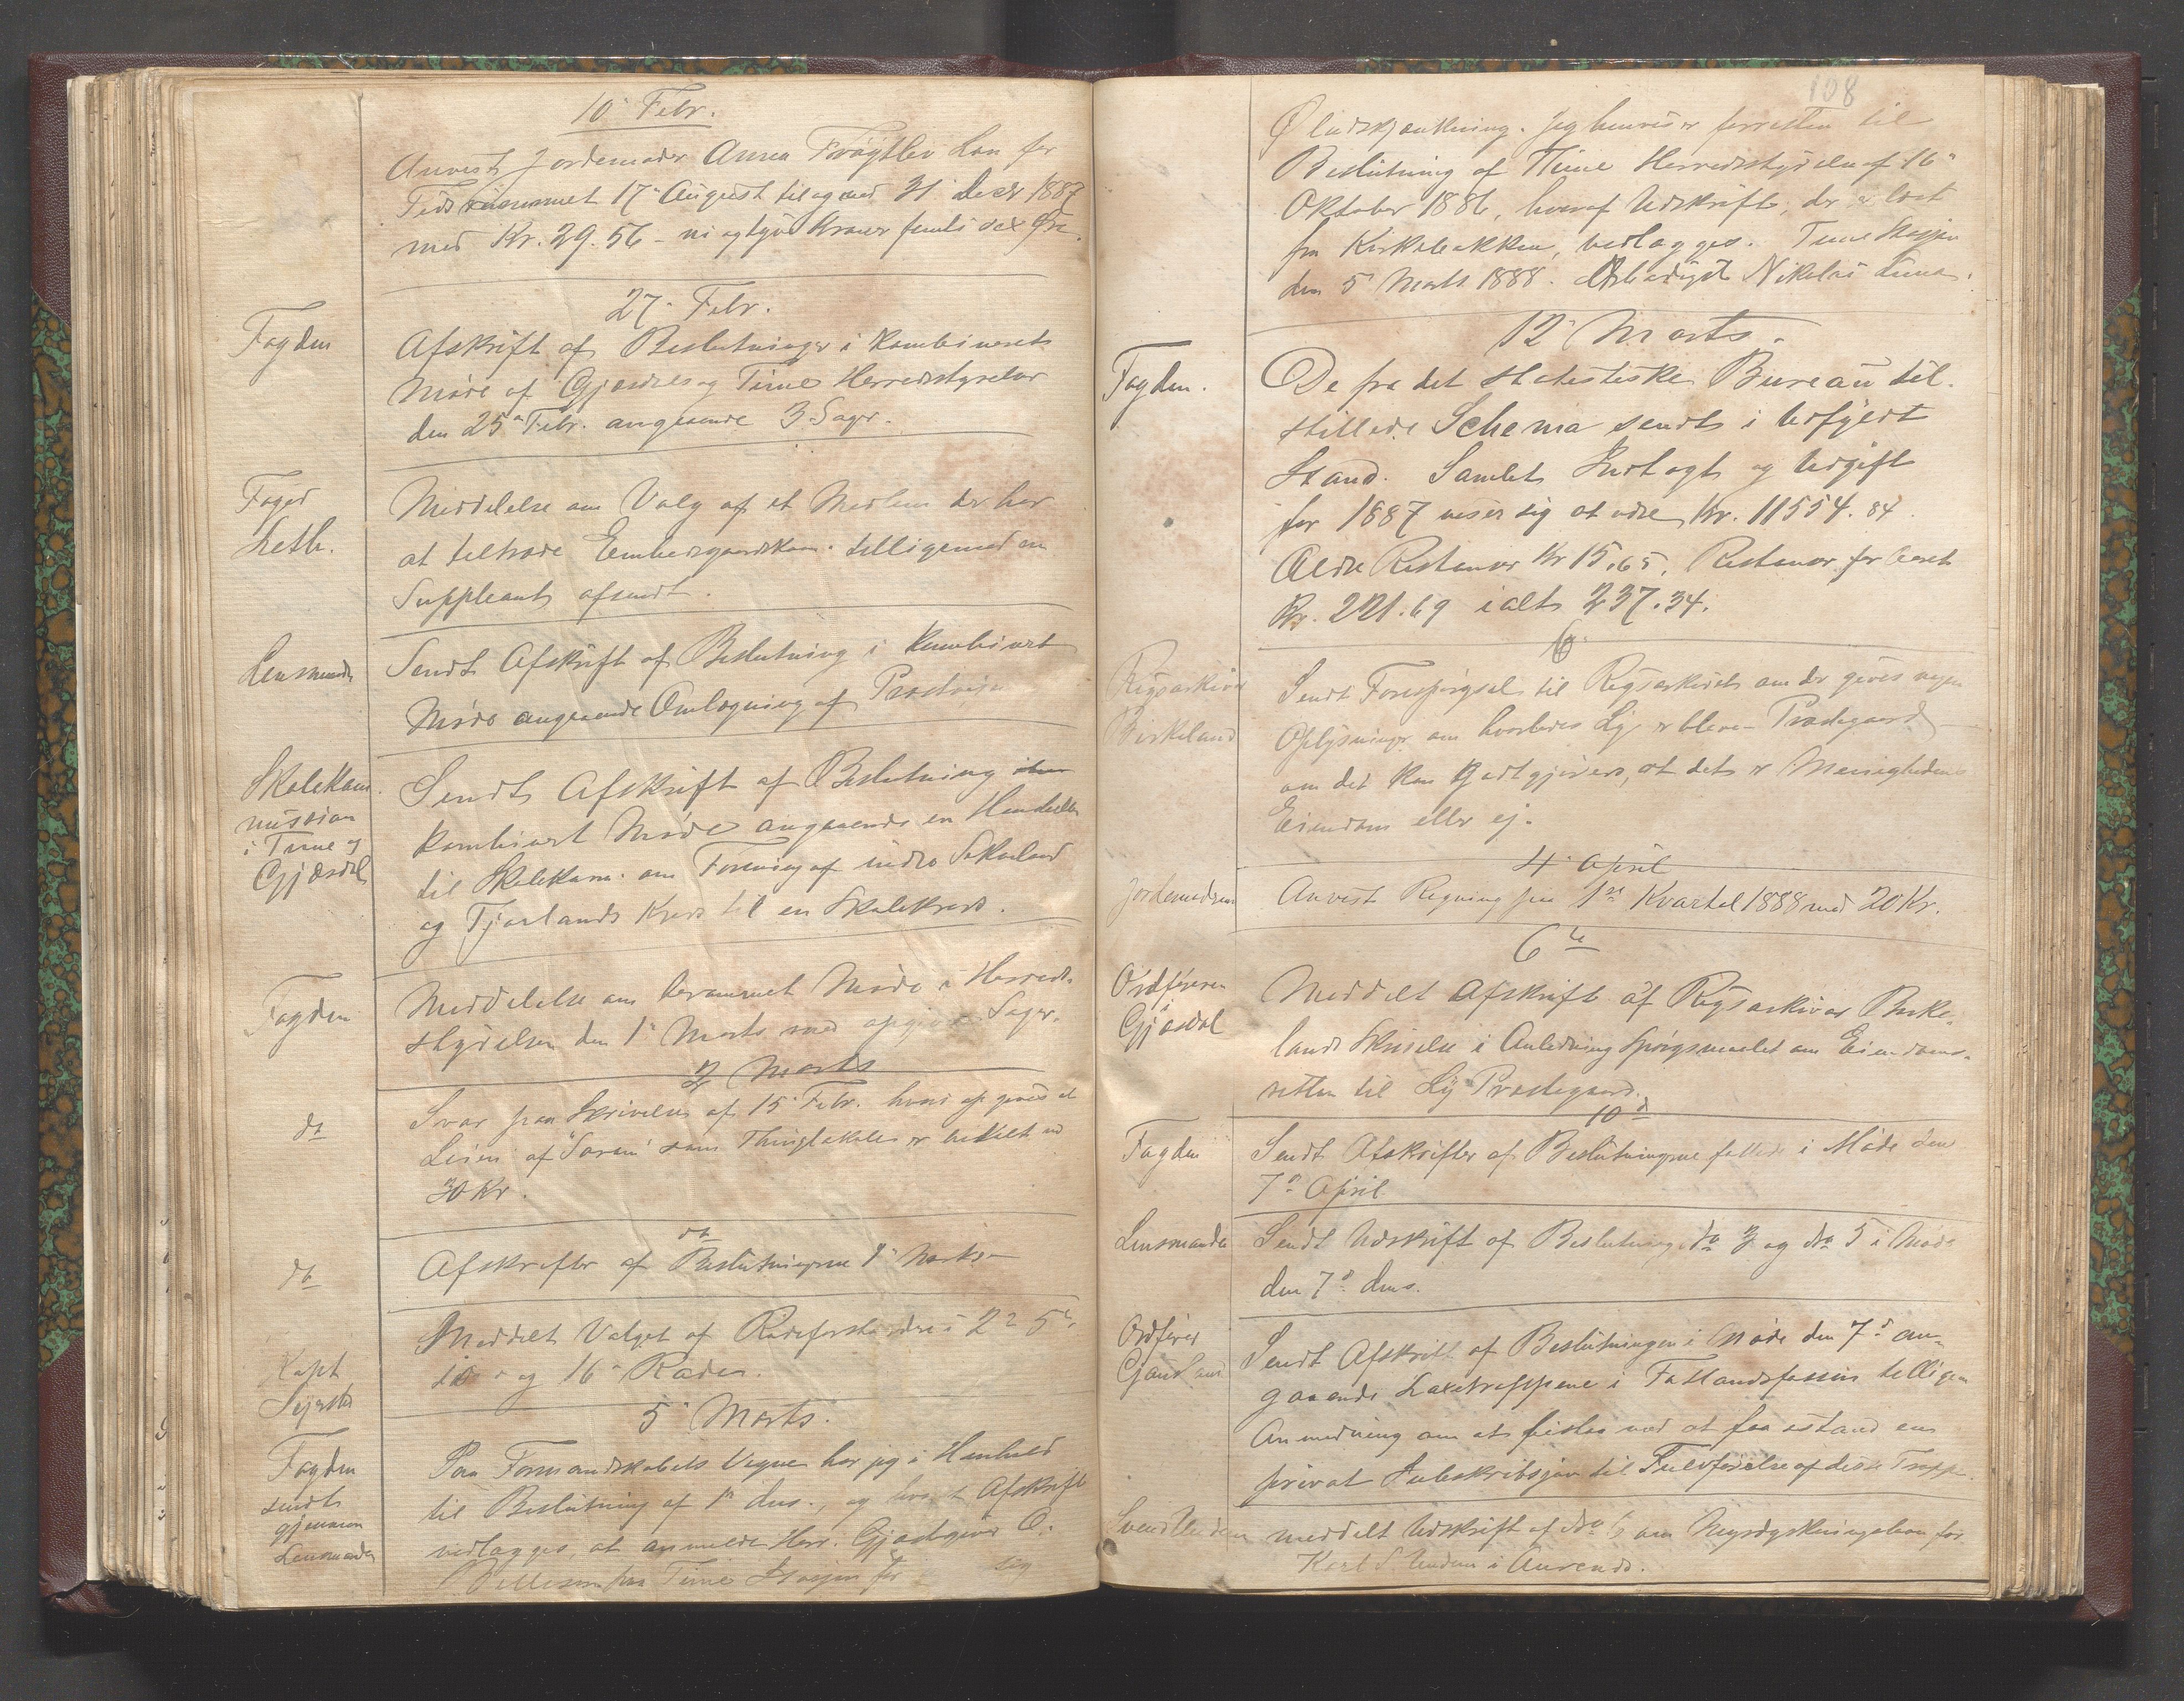 10' Febr.
Anvist Jordemoder Anna Løn for
Tidsrummet 17' August til og med 31' Decbr 1887
med Kr. 29.56 - ni og tyve Kroner femti sex Øre.
27' Febr.
Fogden
Afskrift af Beslutninger i kombineret
Møde af Gjæsdal og Time Herredsstyrelser
den 25' Febr. angaaende 3 Sager.
Foged
Leth.
Meddelelse om Valg af et Medlem der har
at tiltræde Embedsgaardskom. tilligemed en
Suppleant afsendt.
Lensmanden
Sendt Afskrift af Beslutning i kombinert
Møde angaaende Omlægning af
Skolekom-
mission
i Time og
Gjæsdal
Sendt Afskrift af Beslutning
kombinert Møde angaaende en Henvendelse
til Skolekom. om Forening af indre
og Tjorlands Kreds til en Skolekreds.
Fogden
Meddelelse om berammet Møde i Herreds-
styrelsen den 1' Marts med opgivne Sager.
2' Marts
do
Svar paa Skrivelse af 15' Febr. hvori opgives at
Leien af som Thinglokale er betalt med
30 Kr.
do
do
Afskrifter af Beslutningerne 1' Marts
Kapt
Meddelt Valget af Rodeforstandere i 2' 5'
10' og 16' Roder.
5' Marts.
Fogden
sendt
gjennem
Lensmanden
Paa Formandskabets Vegne har jeg i Henhold
til Beslutning af 1' dns., og hvoraf Afskrift
vedlægges, at anmelde Herr. Gjæstgiver O.
fra Time Stasjon for sig
108
Øludskjænkning. Jeg henviser forresten til
Beslutning af Time Herredsstyrelse af 16'
Oktober 1886, hvoraf Udskrift, der er læst
fra Kirkebakken, vedlægges. Time Stasjon
den 5' Marts 1888. Ærbødigst Nikolai
12' Marts.
Fogden.
De fra det statistiske Bureau til-
stillede Schema sendt i udfyldt
Stand. Samlet Indtægt og Udgift
for 1887 viser sig at være Kr. 11554.84
Ældre Restancer Kr 15.65. Restancer for Aaret
Kr. 221.69 ialt 237.34.
Rigsarkivar
Birkeland
Sendt Forespørgsel til Rigsarkivet om der gives nogen
Oplysninger om hvorledes Lye er bleven Præstegaard
om det kan godtgjøres, at det er Menighedens
Eiendom eller ej.
4' April
Jordemoderen
Anvist Regning for 1ste Kvartal 1888 med 20 Kr.
6te
Ordføreren
i
Gjæsdal
Meddelt Afskrift af Rigsarkivar Birke-
lands Skrivelse i Anledning Spørgsmaalet om Eiendoms-
retten til Lye Præstegaard.
10d
Fogden
Sendt Afskrifter af Beslutningerne fattede i Møde den
7de April
Lensmanden
Sendt Udskrift af Beslutning No 3 og No 5 i Møde
den 7de dns.
Ordfører
Sendt Afskrift af Beslutningen i Møde den 7de an-
gaaende Laxetrapperne i Fotlandsfossen tilligemed
Anmodning om at bistaa med at faa istand en
privat Subskribsjon til Fuldførelse af disse Trapper.
Svend Undem
meddelt Udskrift af No 6 om Nyrydningslaan for
Karl S. Undem i Aurenes.